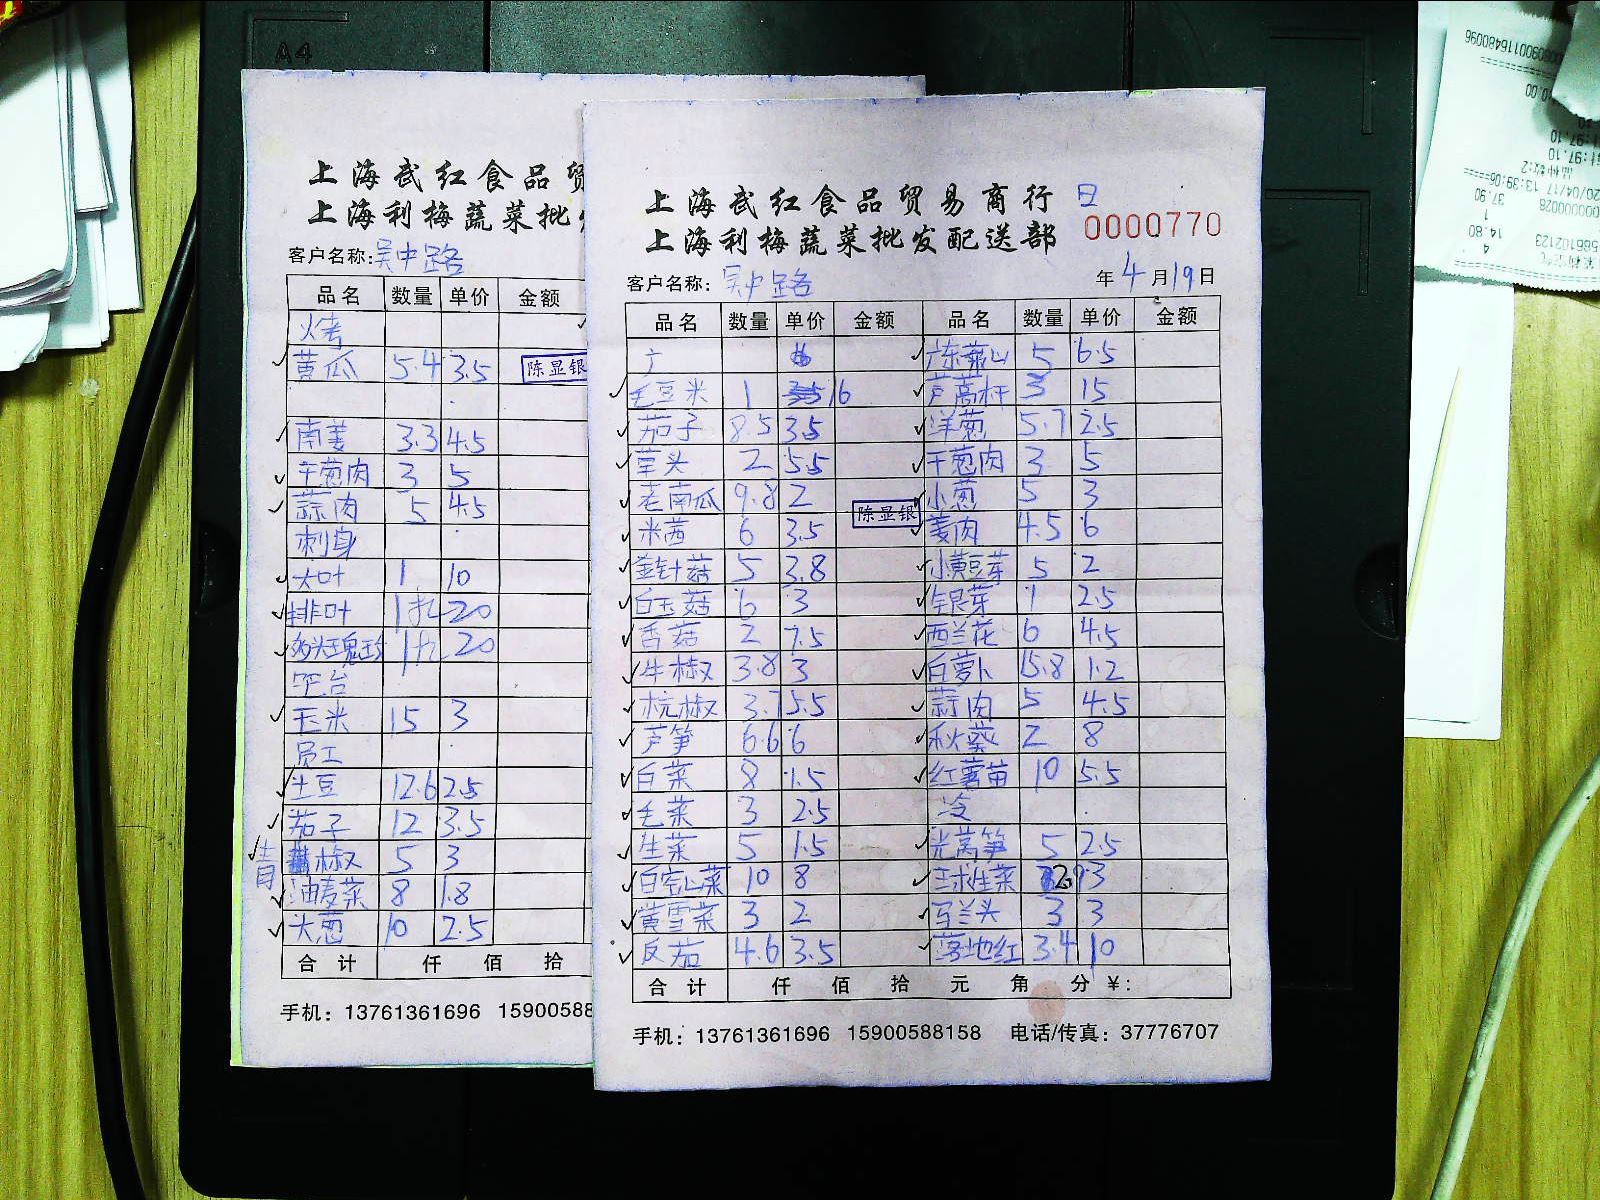 A4
上海武红食品贸
上海利梅蔬菜批
客户名称:吴中路
品名 数量 单价 金额
火考
黄瓜 5.4 3.5
陈显银
南姜 3.3 4.5
干葱肉 3 5
蒜肉 5 4.5
刺身
大叶 1 10
排叶 1扎 20
多头玫瑰 1扎 20
平台
玉米 15 3
员工
土豆 12.6 2.5
茄子 12 3.5
青椒 5 3
油麦菜 8 1.8
大葱 10 2.5
合计 仟 佰 拾
手机: 13761361696 15900588
上海武红食品贸易商行 日
上海利梅蔬菜批发配送部 0000770
客户名称: 吴中路 年 4 月 19 日
品名 数量 单价 金额 品名 数量 单价 金额
广 5 6.5
毛豆米 1 16 芦蒿杆 3 15
茄子 8.5 3.5 洋葱 5.7 2.5
草头 2 5.5 干葱肉 3 5
老南瓜 9.8 2 小葱 5 3
陈显银
米茜 6 3.5 姜肉 4.5 6
金针菇 5 3.8 小黄豆芽 5 2
白玉菇 6 3 银芽 1 2.5
香菇 2 7.5 西兰花 6 4.5
牛椒 3.8 3 白萝卜 15.8 1.2
杭椒 3.7 5.5 蒜肉 5 4.5
芦笋 6.6 6 秋葵 2 8
白菜 8 1.5 红薯苗 10 5.5
毛菜 3 2.5 冷
生菜 5 1.5 光莴笋 5 2.5
10 8 球生菜 3
黄雪菜 3 2 马兰头 3 3
反茄 4.6 3.5 落地红 3.4 10
合计 仟 佰 拾 元 角 分 ¥:
手机: 13761361696 15900588158 电话/传真: 37776707
0900116480096
0.00
:97.10
97.10
品种数:2
20/04/17 13:39:06
37.90
000000028
1
14.80
4
5866102123